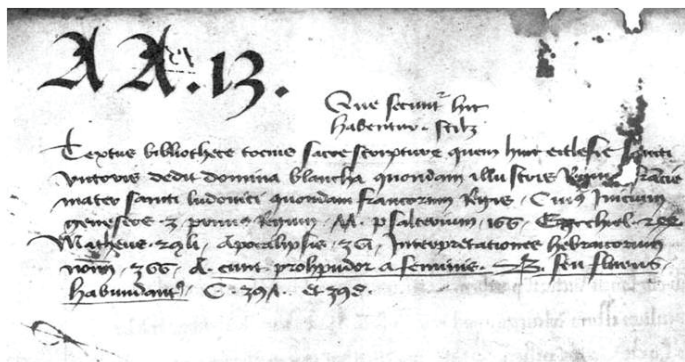 AA.13.
Que secunt~ hic
habentur. scilz
Textus bibliothece tocius sacre scripture quem huic ecclesie sancti
victoris dedit domina blancha quondam illustris Regina francie
mater sancti ludovici quondam francorum Regis. Cuius Inicium
geneseos. 3 primus Regum. psalterium. 166.
Matheus. Apocalipsis. 361. Interpretationes hebraicorum
nom. 366. A. cunt. prohpudor a feminis. B. seu fluens.
habundant. C. et